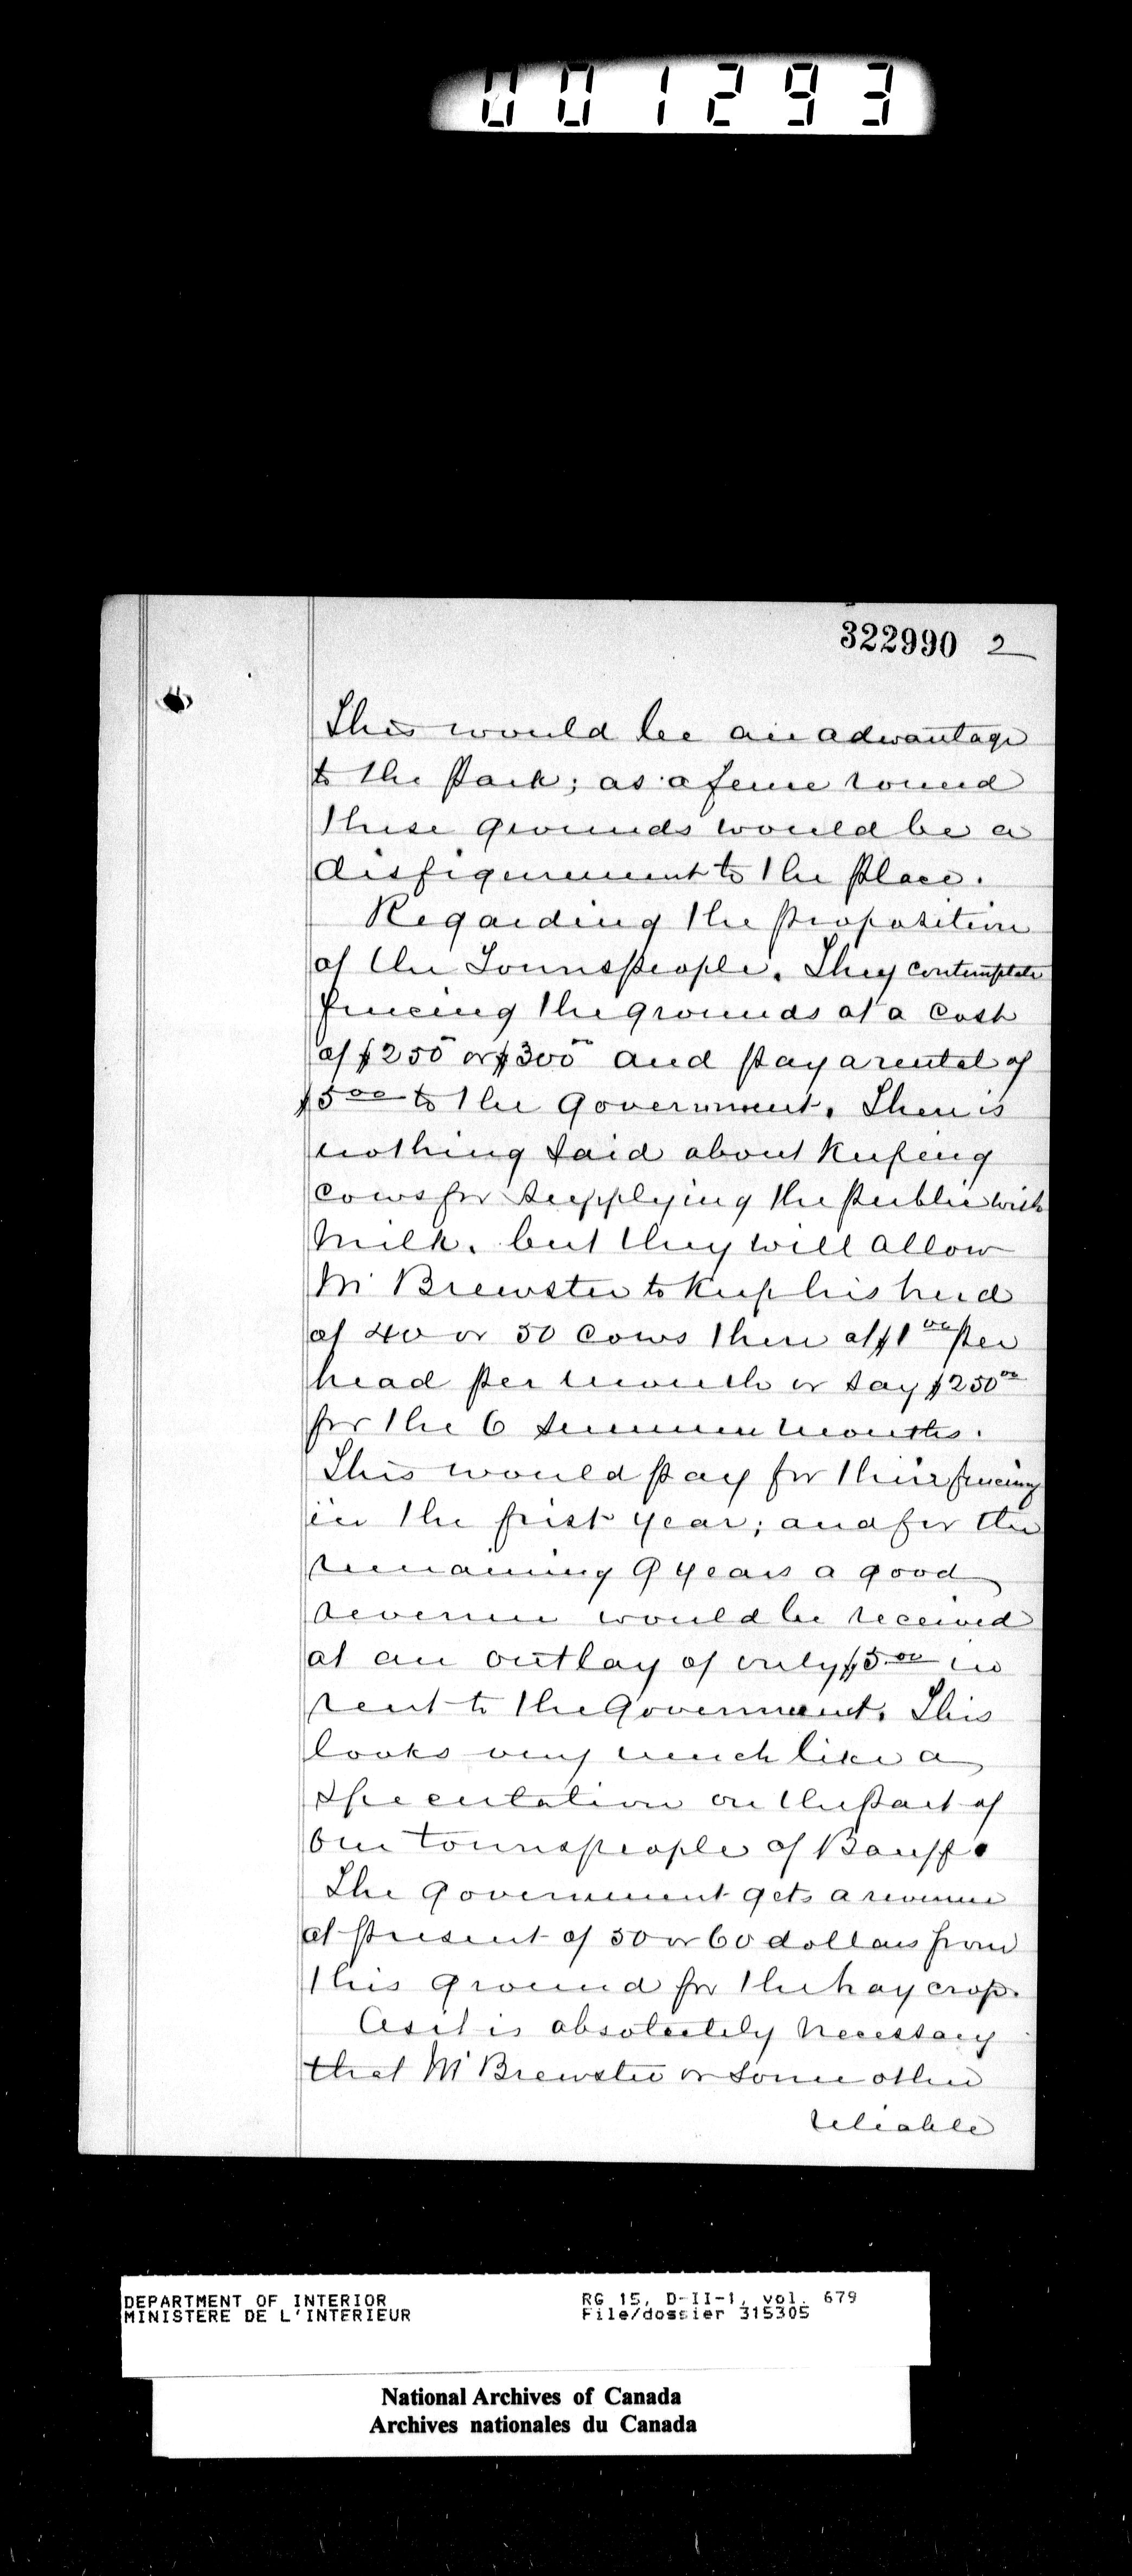 001293
322990 2
This would be an advantage
to the Park; as a fence round
these grounds would be a
disfigurement to the place.
Regarding the proposition
of the Townspeople. They contemplate
fencing the grounds at a cost
of $250 or $300 and pay a rental of
$5.00 to the Government. There is
nothing said about keeping
cows for supplying the public with
milk. but they will allow
Mr Brewster to keep his herd
of 40 or 50 cows there at $1.00 per
head per month or say $250.00
for the 6 summer months.
This would pay for their fencing
in the first year; and for the
remaining 9 years a good
revenue would be received
at an outlay of only $5.00 in
rent to the Government. This
looks very much like a
speculation on the part of
our townspeople of Banff.
The Government gets a revenue
at present of 50 or 60 dollars from
this ground for the hay crop.
As it is absolutely necessary
that Mr Brewster or some other
reliable
DEPARTMENT OF INTERIOR RG 15, D-II-1, vol. 679
MINISTERE DE L'INTERIEUR File/dossier 315305
National Archives of Canada
Archives nationales du Canada